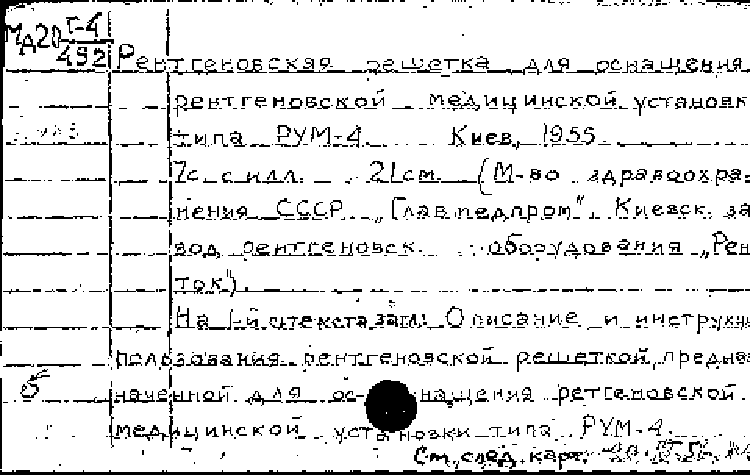 МА20 Г-4
492
Рентгеновская решетка для оснащения
рентгеновской медицинской установк
типа РУМ-4. Киев, 1955.
7с. с илл. 21см. (М-во здравоохра-
нения СССР „Главмедпром". Киевск. за
вод рентгеновск. оборудования „Рен
ток").
На 1-й с. текста загл: Описание и инструкц
пользования рентгеновской решеткой, предна
б наченной для ос- нащения ретгеновской
медицинской установки типа РУМ-4.
См. след. карт.